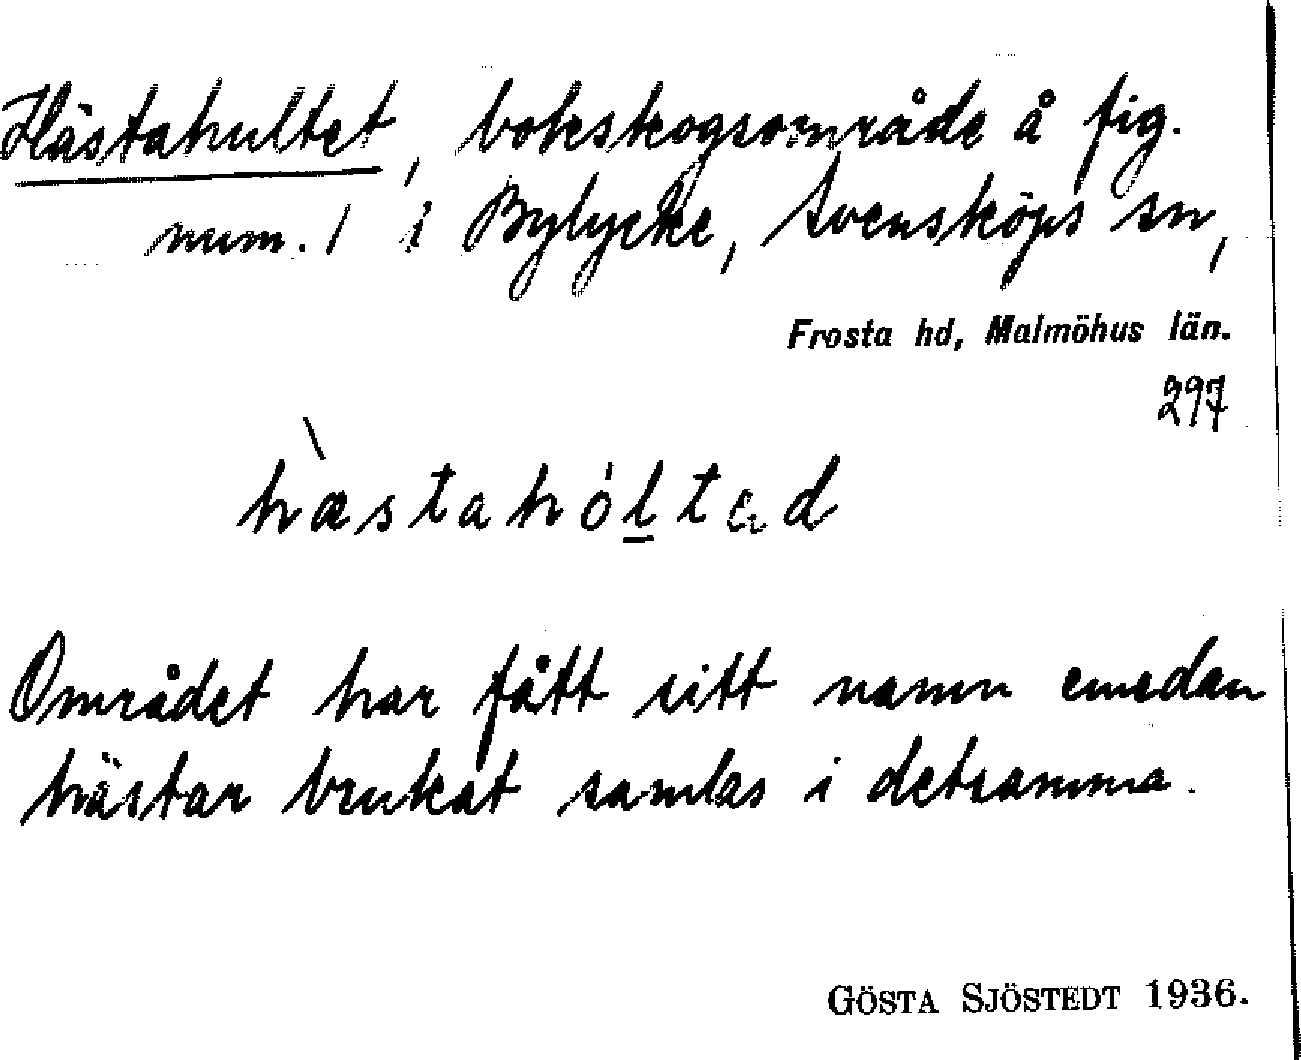 Hästahultet, bokskogsområde å fig.
num. 1 i Bylycke, Svensköps sn,
Frosta hd, Malmöhus län.
297
hæ̀stahóltad
Området har fått sitt namn emedan
hästar brukat samlas i detsamma.
GÖSTA SJÖSTEDT 1936.